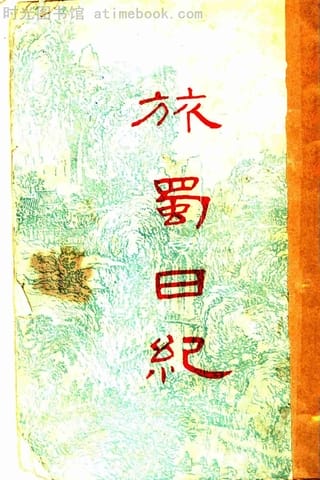 时光图书馆 atimebook.com
旅蜀日紀